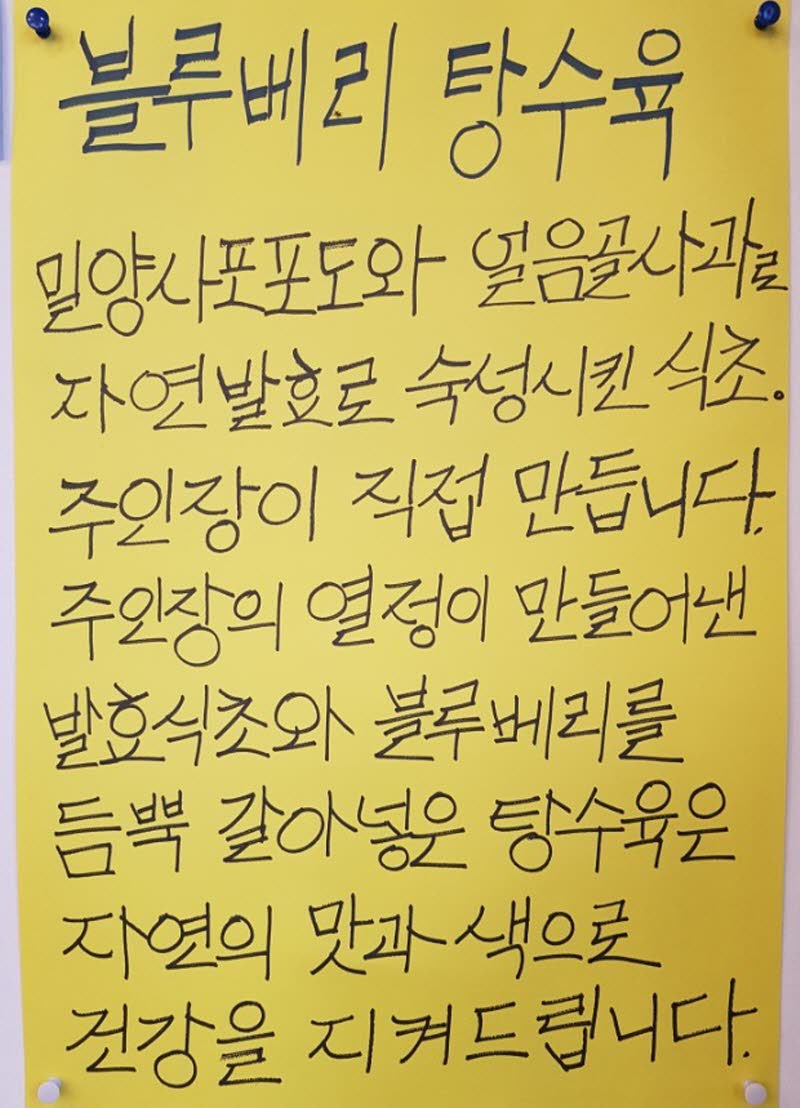 블루베리 탕수육
밀양사포포도와 얼음골사과로
자연발효로 숙성시킨 식초.
주인장이 직접 만듭니다.
주인장의 열정이 만들어낸
발효식초와 블루베리를
듬뿍 갈아넣은 탕수육은
자연의 맛과 색으로
건강을 지켜드립니다.